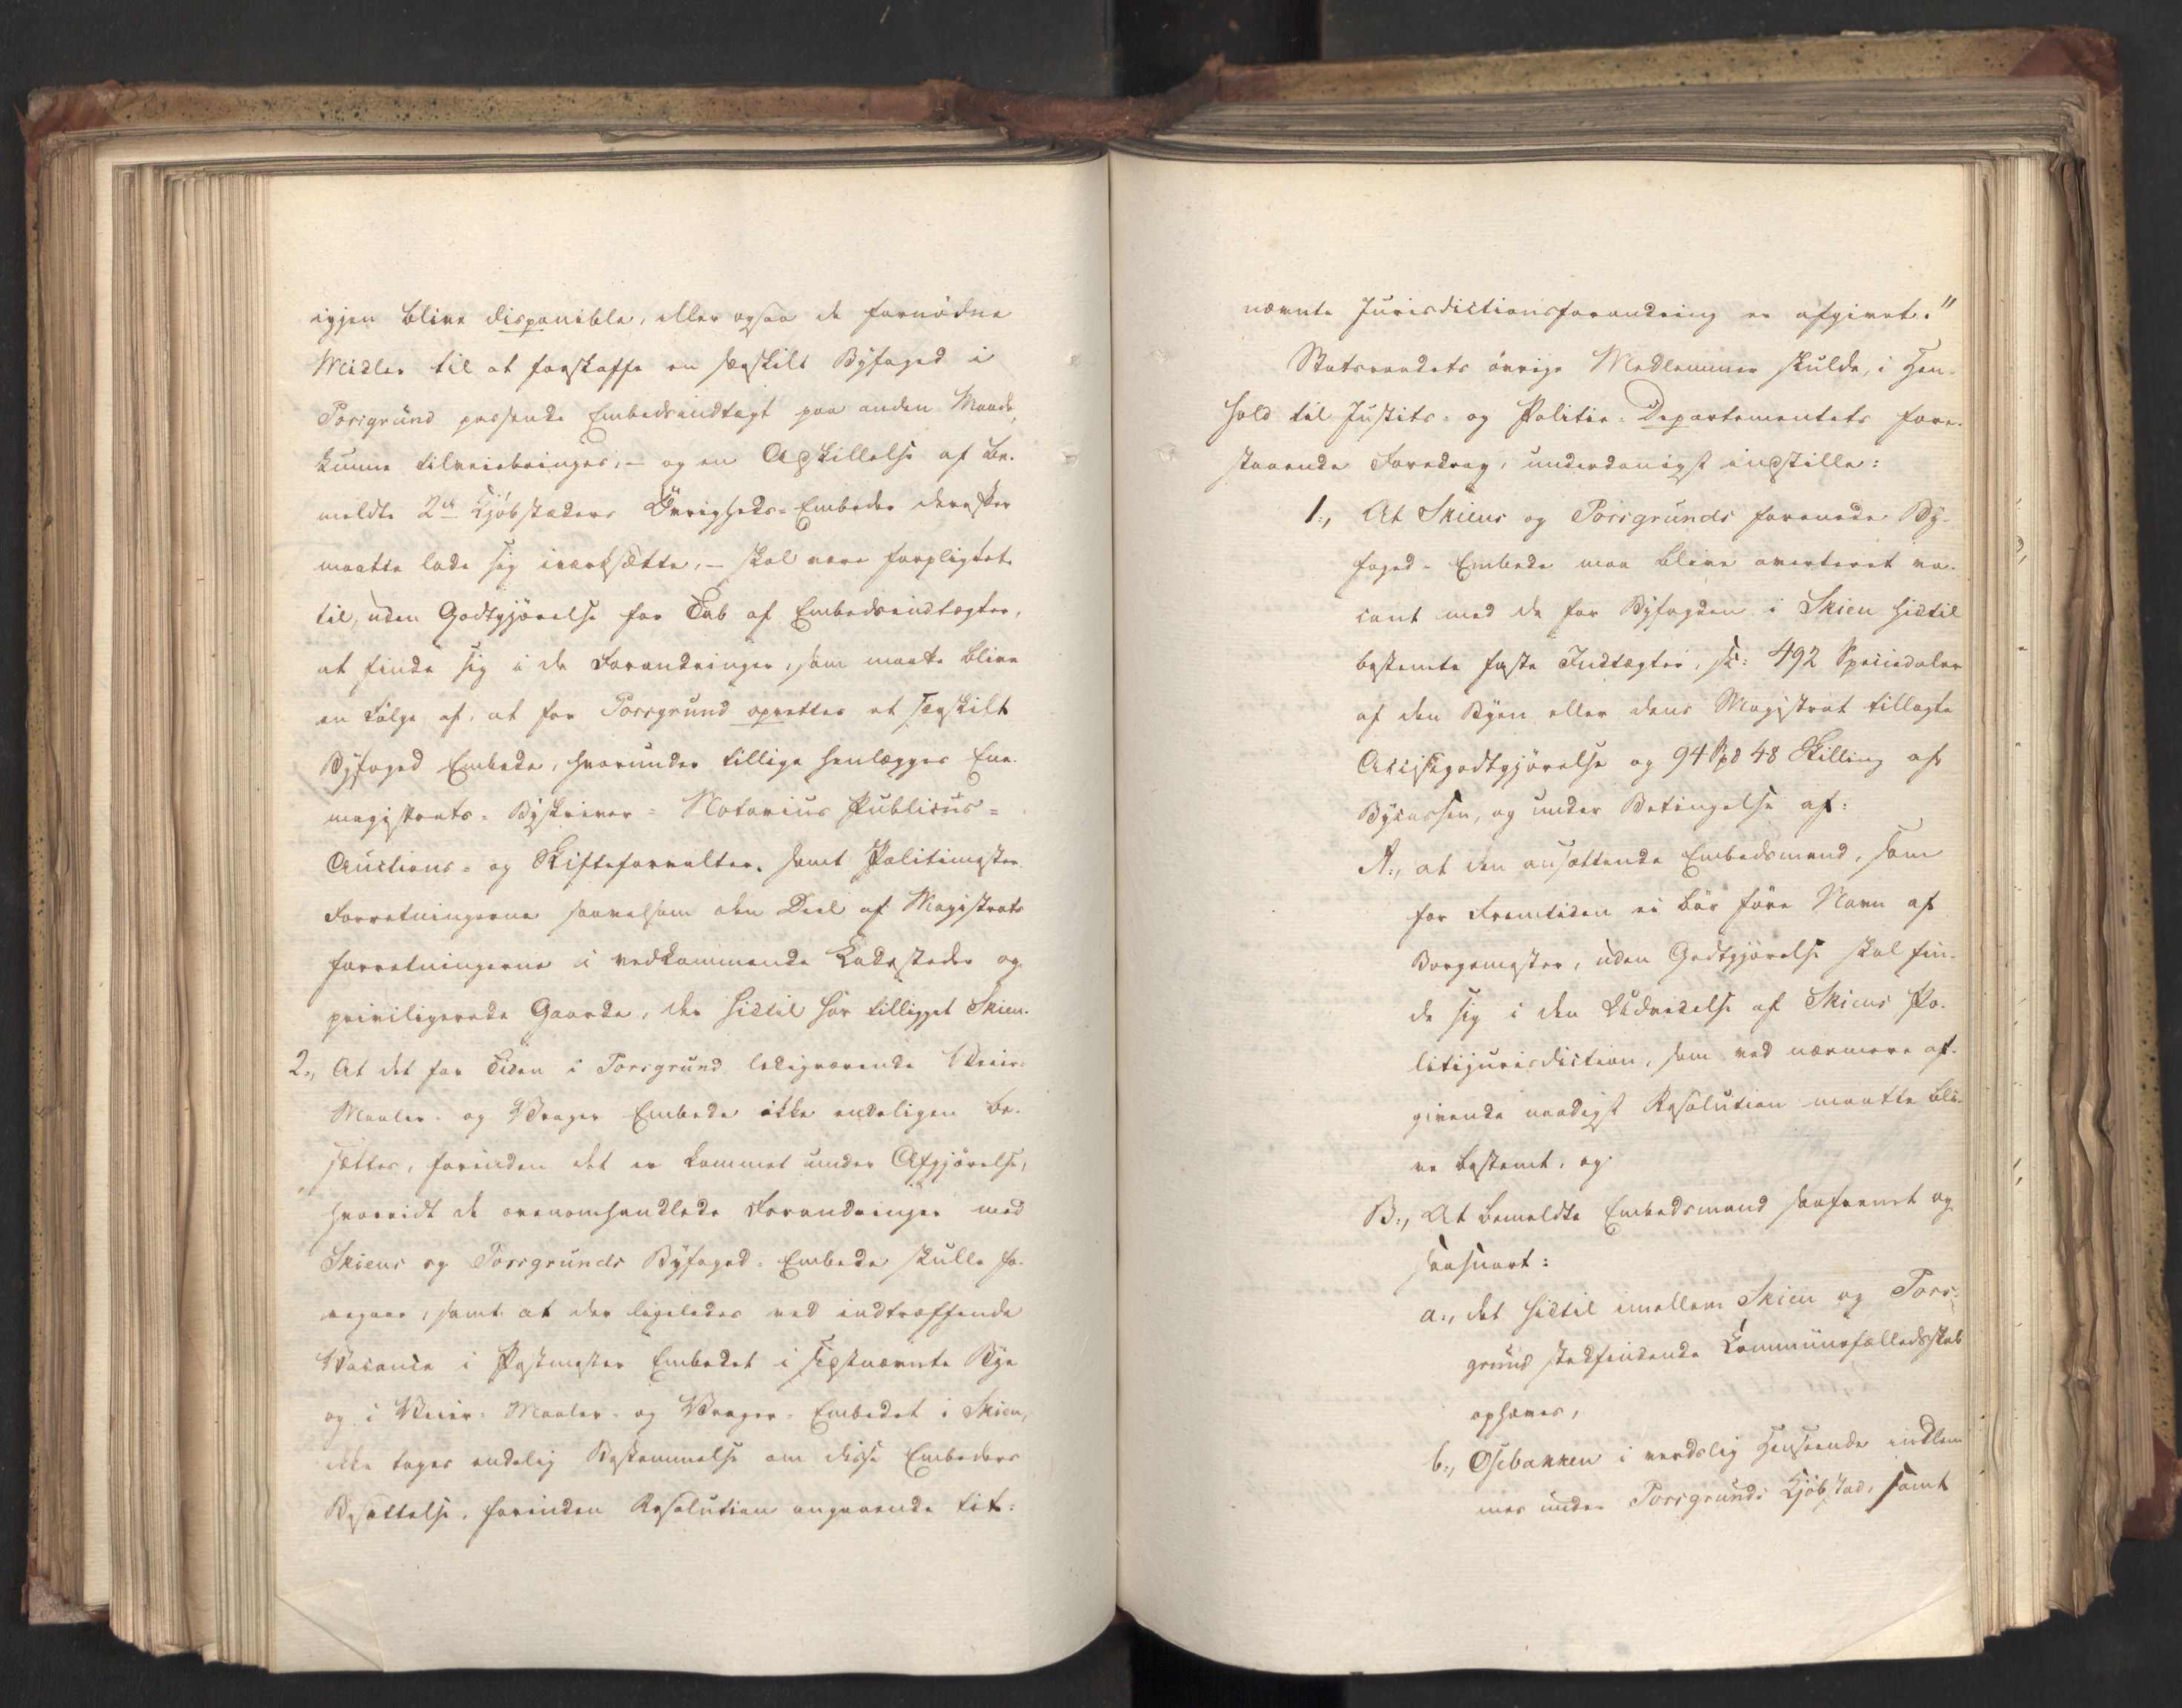 igjen blive disponible, eller ogsaa de fornødne
Midler til at forskaffe en særskilt Byfoged i
Porsgrund passende Embedsindtægt paa anden Maade,
kunne tilveiebringes, – og en Adskillelse af be-
meldte 2de Kjøbstæders Øvrigheds-Embeder derefter
maatte lade sig iværksætte, – skal være forpligtet
til, uden Godtgjørelse for Tab af Embedsindtægter,
at finde sig i de Forandringer, som maatte blive
en Følge af, at for Porsgrund oprettes et særskilt
Byfoged Embede, hvorunder tillige henlægges Ene-
magistrats- Byskriver- Notarius Publicus-
Auctions- og Skifteforvalter- samt Politimester
Forretningerne saavelsom den Deel af Magistrats
forretningerne i vedkommende Ladesteder og
priviligerede Gaarde, der hidtil har tilligget Skien.
2., At det for Tiden i Porsgrund ledigværende Veier-
Maaler- og Vrager Embede ikke endeligen be-
sættes, forinden det er kommet under Afgjørelse,
hvorvidt de ovenomhandlede Forandringer med
Skiens og Porsgrunds Byfoged-Embede skulle fo-
regaae, samt at der ligeledes ved indtræffende
Vacance i Postmester Embedet i sidstnævnte Bye
og i Veier- Maaler- og Vrager-Embedet i Skien,
ikke tages endelig Bestemmelse om disse Embeders
Besættelse, forinden Resolution angaaende tit-
nævnte Jurisdictionsforandring er afgivet."
Statsraadets øvrige Medlemmer skulde, i Hen-
hold til Justits- og Politie-Departementets fore-
staaende Foredrag, underdanigst indstille:
1., At Skiens og Porsgrunds forenede By-
foged-Embede maa blive averteret va-
cant med de for Byfogden i Skien hidtil
bestemte faste Indtægter, sc: 492 Speciedaler
af den Byen eller dens Magistrat tillagte
Accisegodtgjørelse og 94 Spd 48 Skilling af
Bycassen, og under Betingelse af:
A., at den ansættende Embedsmand, som
for Fremtiden ei bør føre Navn af
Borgemester, uden Godtgjørelse skal fin-
de sig i den Udvidelse af Skiens Po-
litijurisdiction, som ved nærmere af-
givende naadigst Resolution maatte bli-
ve bestemt, og
B., At bemeldte Embedsmand saafremt og
saasnart:
a., det hidtil imellem Skien og Pors-
grund stedfindende Communefælledsskab
ophæves,
b., Osebakken i verdslig Henseende indlem
mes under Porsgrunds Kjøbstad, samt